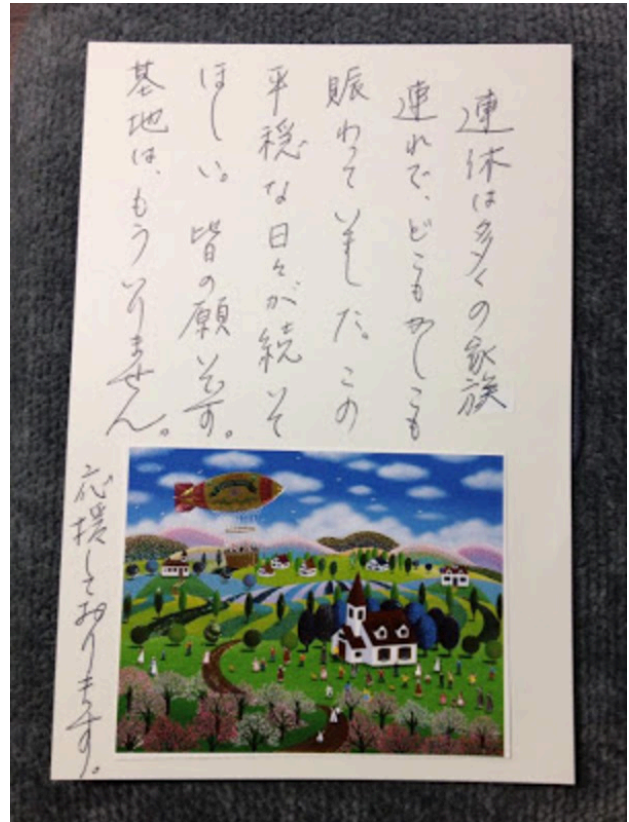 連休は多くの家族
連れで、どこもかしこも
賑わっていました。この
平穏な日々が続いて
ほしい。皆の願いです。
基地は、もういりません。
応援しております。